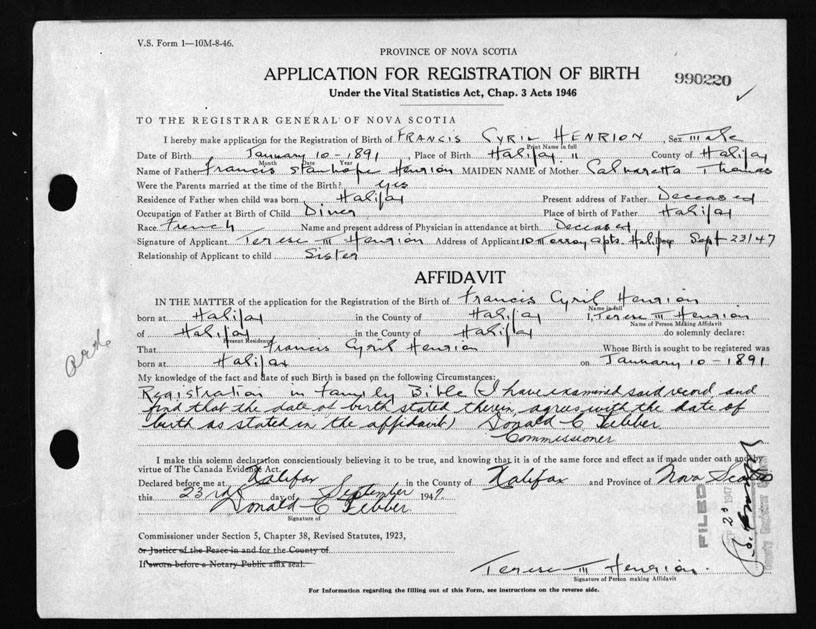 V.S. Form 1—10M-8-46.
PROVINCE OF NOVA SCOTIA
APPLICATION FOR REGISTRATION OF BIRTH
990220
Under the Vital Statistics Act, Chap. 3 Acts 1946
TO THE REGISTRAR GENERAL OF NOVA SCOTIA
I hereby make application for the Registration of Birth of FRANCIS CYRIL HENRION, Sex Male
Print Name in full
Date of Birth January 10 - 1891, Place of Birth Halifax " County of Halifax
Month Date Year
Name of Father Francis Stanhope Henrion MAIDEN NAME of Mother Thomas
Were the Parents married at the time of the Birth? Yes
Residence of Father when child was born Halifax Present address of Father Deceased
Occupation of Father at Birth of Child Diver Place of birth of Father Halifax
Race French Name and present address of Physician in attendance at birth Deceased
Signature of Applicant Terese M Henrion Address of Applicant 10 Murray Apts. Halifax Sept 23/47
Relationship of Applicant to child Sister
AFFIDAVIT
IN THE MATTER of the application for the Registration of the Birth of Francis Cyril Henrion
Name in full
born at Halifax in the County of Halifax I, Terese M Henrion
Name of Person Making Affidavit
of Halifax in the County of Halifax do solemnly declare:
Present Residence
That Francis Cyril Henrion Whose Birth is sought to be registered was
born at Halifax on January 10 - 1891
My knowledge of the fact and date of such Birth is based on the following Circumstances:
Registration in Family Bible (I have examined said record and
find that the date of birth stated therein agrees with the date of
birth as stated in the affidavit) Donald C Tebber
Commissioner
I make this solemn declaration conscientiously believing it to be true, and knowing that it is of the same force and effect as if made under oath and by
virtue of The Canada Evidence Act.
Declared before me at Halifax in the County of Halifax and Province of Nova Scotia
this 23rd day of September 1947.
Donald C Tebber
Signature of
Commissioner under Section 5, Chapter 38, Revised Statutes, 1923,
or Justice of the Peace in and for the County of
If sworn before a Notary Public affix seal.
FILED
Terese M Henrion.
Signature of Person making Affidavit
For Information regarding the filling out of this Form, see instructions on the reverse side.